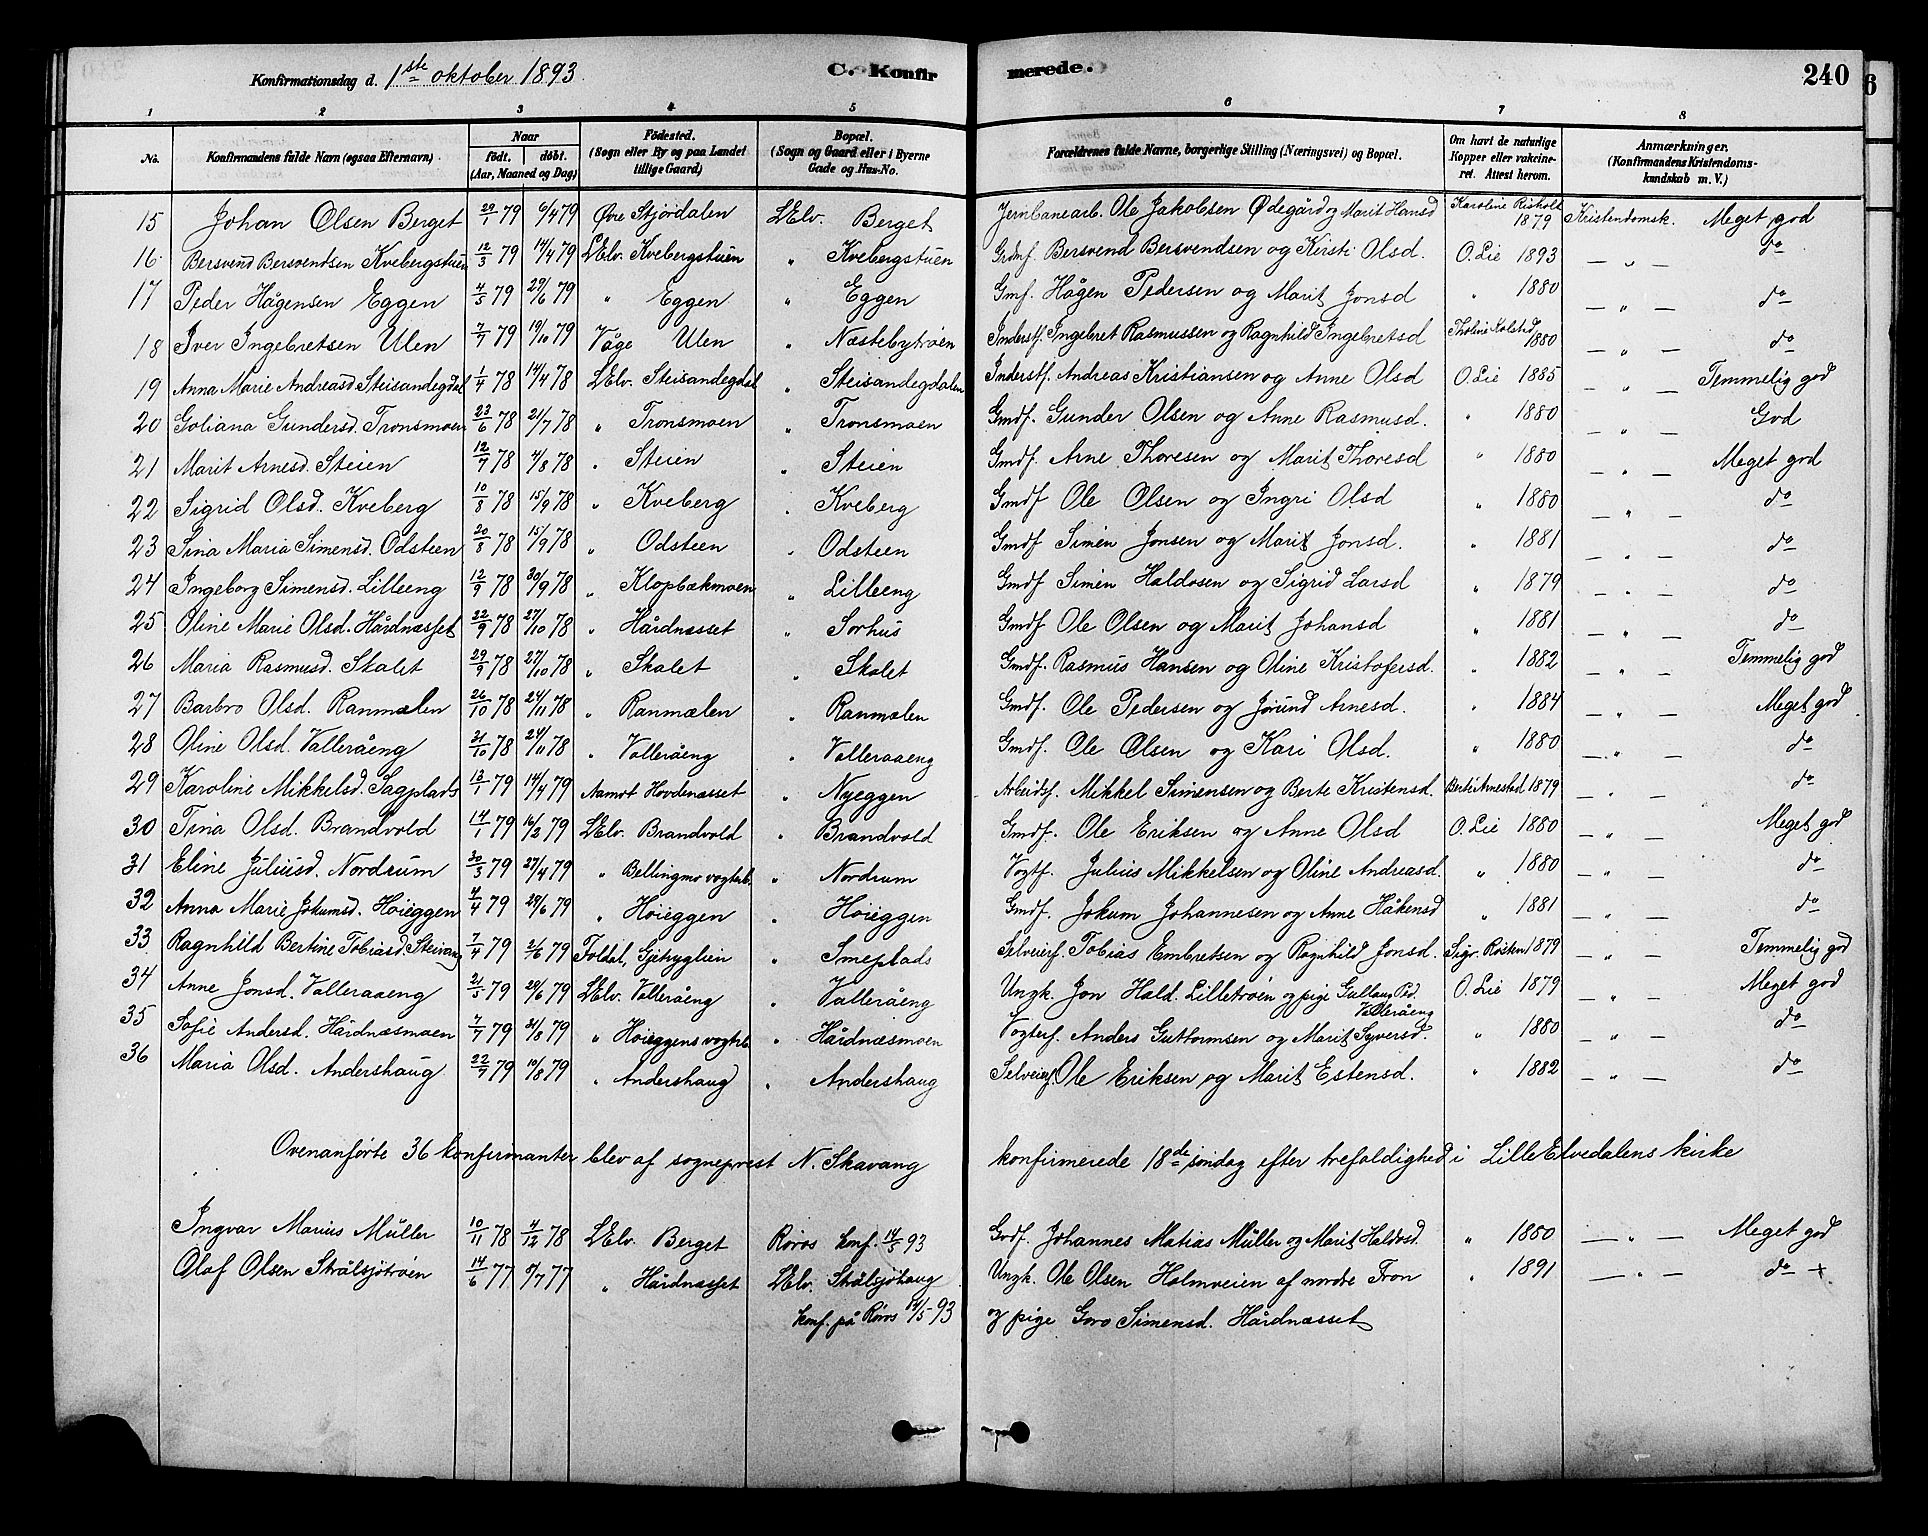 Konfirmationsdag d. 1ste oktober 1893. C. Konfirmerede. 240
1 2 3 4 5 6 7 8
No. Konfirmandens fulde Navn (ogsaa Efternavn). Naar födt. döbt. (Aar, Maaned og Dag) Födested. (Sogn eller By og paa Landet tillige Gaard) Bopæl. (Sogn og Gaard eller i Byerne Gade og Hus-No. Forældrenes fulde Navne, borgerlige Stilling (Næringsvei) og Bopæl. Om havt de naturlige Kopper eller vakcineret. Attest herom. Anmærkninger. (Konfirmandens Kristendomskundskab m. V.)
15 Johan Olsen Berget 29/1 79 6/4 79 Øvre Stjørdalen LElv. Berget Jernbanearb. Ole Jakobsen Ødegård og Marit Hansd Karoline Risholt 1879 Kristendomsk. Meget god
16 Bersvend Bersvendsen Kvebergstuen 12/3 79 14/4 79 LElv. Kvebergstuen " Kvebergstuen Grdmf. Bersvend Bersvendsen og Kirsti Olsd. O. Lie 1893 — " — do
17 Peder Hågensen Eggen 4/5 79 29/6 79 " Eggen " Eggen Gmf. Hågen Pedersen og Marit Jonsd " 1880 — " — do
18 Iver Ingebretsen Ulen 7/7 79 19/10 79 Våge Ulen " Næstebytrøen Inderstf. Ingebret Rasmussen og Ragnhild Ingebretsd Tholine Kolstad 1880 — " — do
19 Anna Marie Andreasd Steisandegdal 1/4 78 14/4 78 LElv. Steisandegdal " Steisandegdalen Inderstf. Andreas Kristiansen og Anne Olsd O. Lie 1885 — " — Temmelig god
20 Goliana Gundersd. Tronsmoen 23/6 78 21/7 78 " Tronsmoen " Tronsmoen Gmdf. Gunder Olsen og Anne Rasmusd. " 1880 — " — God
21 Marit Arnesd. Steien 12/7 78 4/8 78 " Steien " Steien Gmdf. Arne Thoresen og Marit Thoresd " 1880 — " — Meget god
22 Sigrid Olsd. Kveberg 10/8 78 15/9 78 " Kveberg " Kveberg Gmdf Ole Olsen og Ingri Olsd " 1880 — " — do
23 Sina Maria Simensd. Odsteen 20/8 78 15/9 78 " Odsteen " Odsteen Gmdf Simen Jonsen og Marit Jonsd. " 1881 — " — do
24 Ingeborg Simensd. Lilleeng 12/9 78 30/9 78 " Klopbækmoen " Lilleeng Gmdf Simen Haldosen og Sigrid Larsd " 1879 — " — do
25 Oline Marie Olsd. Hårdnæsset 22/9 78 27/10 78 " Hårdnæsset " Sorhus Gmdf Ole Olsen og Marit Johansd " 1881 — " — do
26 Maria Rasmusd. Skalet 29/9 78 27/10 78 " Skalet " Skalet Gmdf. Rasmus Hansen og Oline Kristofersd. " 1882 — " — Temmelig god
27 Barbro Olsd. Ranmælen 26/10 78 24/11 78 " Ranmælen " Ranmælen Gmdf. Ole Pedersen og Jørund Arnesd. " 1884 — " — Meget god
28 Oline Olsd. Valleråeng 31/10 78 24/11 78 " Valleråeng " Valleraaeng Gmdf. Ole Olsen og Kari Olsd. " 1880 — " — do
29 Karoline Mikkelsd. Sagplads 13/1 79 14/4 79 Aamot Hovdenæsset " Nyeggen Arbeidsf. Mikkel Simensen og Berte Kristensd. Berti Arnestad 1879 — " — do
30 Tina Olsd. Brandvold 14/1 79 16/2 79 LElv. Brandvold " Brandvold Gmdf. Ole Eriksen og Anne Olsd O. Lie 1880 — " — Meget god
31 Eline Juliusd. Nordrum 30/3 79 27/4 79 " Bellingmo vogterb. " Nordrum Vogtf. Julius Mikkelsen og Oline Andreasd. " 1880 — " — do
32 Anna Marie Jokumsd. Høieggen 4/4 79 29/6 79 " Høieggen " Høieggen Gmdf. Jokum Johannesen og Anne Håkensd " 1881 — " — do
33 Ragnhild Bertine Tobiasd. Steivang 7/4 79 2/6 79 Foldal, Gjetryglien " Smeplads Selveierf. Tobias Embretsen og Ragnhild Jonsd. Sigr. Røsten 1879 — " — Temmelig god
34 Anne Jonsd. Valleraaeng 21/5 79 29/6 79 LElv. Valleråeng " Valleråeng Ungk. Jon Hald. Lilletrøen og pige Gullaug Ped. Valleråeng O. Lie 1879 — " — Meget god
35 Sofie Andersd. Hårdnæsmoen 7/7 79 31/8 79 " Høieggens vogterb. " Hårdnæsmoen Vogterf. Anders Guttormsen og Marit Syversd. " 1880 — " — do
36 Maria Olsd. Andershaug 22/7 79 10/8 79 " Andershaug " Andershaug Selveierf. Ole Eriksen og Marit Estensd. " 1882 — " — do
Ovenanførte 36 konfirmanter blev af sogneprest N. Skavang konfirmerede 18de søndag efter trefoldighed i Lille Elvedalens kirke
Ingvar Marius Müller 10/11 78 4/12 78 LElv. Berget Røros konf. 14/5 93 Gmdf. Johannes Matias Müller og Marit Haldosd. " 1880 — " — Meget god
Olaf Olsen Strålsjøtrøen 14/6 77 8/7 77 " Hårdnæsset LElv. Strålsjøhaug Ungk. Ole Olsen Holmveien af nordre Fron " 1891 — " — do +
konf. på Røros 14/5 93 og pige Goro Simensd. Hårdnæsset